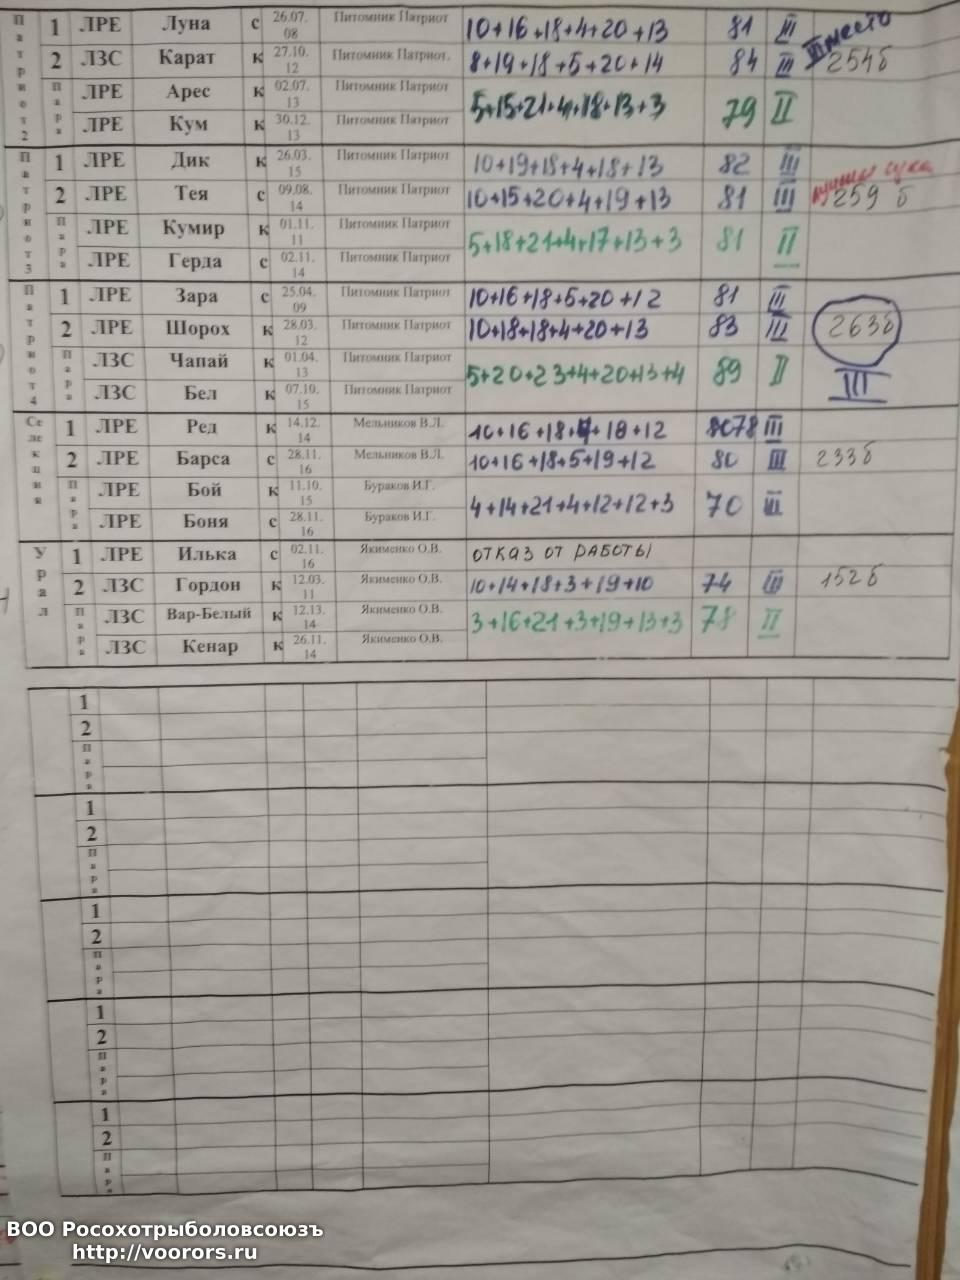 Патриот 2 1 ЛРЕ Луна с 26.07.08 Питомник Патриот 10+16+18+4+20+13 81 III
2 ЛЗС Карат к 27.10.12 Питомник Патриот. 8+19+18+5+20+14 84 III место 254б
Пара ЛРЕ Арес к 02.07.13 Питомник Патриот 5+15+21+4+18+13+3 79 II
ЛРЕ Кум к 30.12.13 Питомник Патриот
Патриот 3 1 ЛРЕ Дик к 26.03.15 Питомник Патриот 10+19+18+4+18+13 82 III
2 ЛРЕ Тея с 09.08.14 Питомник Патриот 10+15+20+4+19+13 81 III лучшая сука 259 б
Пара ЛРЕ Кумир к 01.11.11 Питомник Патриот 5+18+21+4+17+13+3 81 II
ЛРЕ Герда с 02.11.14 Питомник Патриот
Патриот 4 1 ЛРЕ Зара с 25.04.09 Питомник Патриот 10+16+18+5+20+12 81 III
2 ЛРЕ Шорох к 28.03.12 Питомник Патриот 10+18+18+4+20+13 83 III 263б
Пара ЛЗС Чапай к 01.04.13 Питомник Патриот 5+20+23+4+20+13+4 89 II III
ЛЗС Бел к 07.10.15 Питомник Патриот
Селекция 1 ЛРЕ Ред к 14.12.14 Мельников В.Л. 10+16+18+4+18+12 78 III
2 ЛРЕ Барса с 28.11.16 Мельников В.Л. 10+16+18+5+19+12 80 III 233б
Пара ЛРЕ Бой к 11.10.15 Бураков И.Г. 4+14+21+4+12+12+3 70 III
ЛРЕ Боня с 28.11.16 Бураков И.Г.
Урал 1 ЛРЕ Илька с 02.11.16 Якименко О.В. ОТКАЗ ОТ РАБОТЫ
2 ЛЗС Гордон к 12.03.11 Якименко О.В. 10+14+18+3+19+10 74 III 152б
Пара ЛЗС Вар-Белый к 12.13.14 Якименко О.В. 3+16+21+3+19+13+3 78 II
ЛЗС Кенар к 26.11.14 Якименко О.В.
1
2
Пара
1
2
Пара
1
2
Пара
1
2
Пара
1
2
Пара
ВОО Росохотрыболовсоюзъ
http://voorors.ru